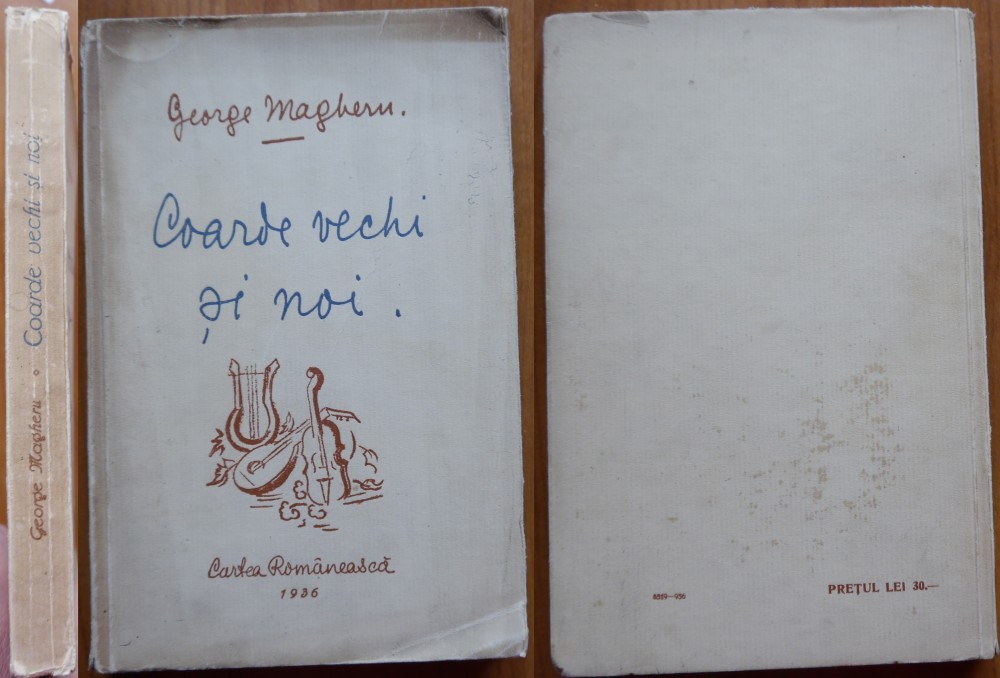 George Magheru • Coarde vechi și noi
George Magheru.
Coarde vechi
și noi.
Cartea Românească
1936
8569—936
PREȚUL LEI 30.—